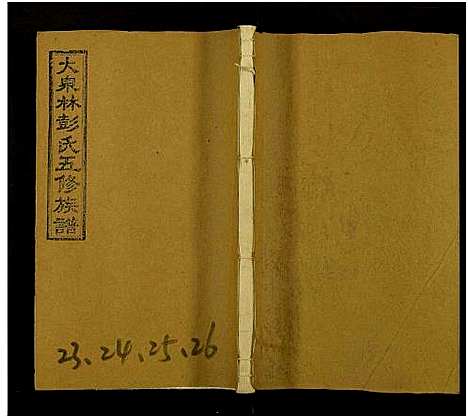 大泉林彭氏五修族譜
23、24、25、26